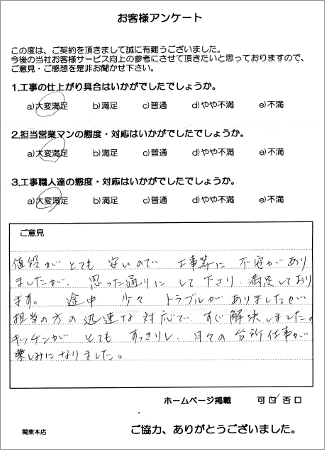 お客様アンケート
この度は、ご契約を頂きまして誠に有難うございました。
今後の当社お客様サービス向上の参考にさせて頂きたいと思っておりますので、
ご意見・ご感想を是非お聞かせ下さい。
1.工事の仕上がり具合はいかがでしたでしょうか。
a)大変満足 b)満足 c)普通 d)やや不満 e)不満
2.担当営業マンの態度・対応はいかがでしたでしょうか。
a)大変満足 b)満足 c)普通 d)やや不満 e)不満
3.工事職人達の態度・対応はいかがでしたでしょうか。
a)大変満足 b)満足 c)普通 d)やや不満 e)不満
ご意見
値段がとても安いので 工事等に不安があり
ましたが、思った通りにして下さり、満足しており
ます。途中 少々 トラブルがありましたが
担当の方の迅速な対応で、すぐ解決しました。
キッチンが とても すっきりし、日々の台所仕事が
楽しみになりました。
ホームページ掲載 可 否
関東本店
ご協力、ありがとうございました。